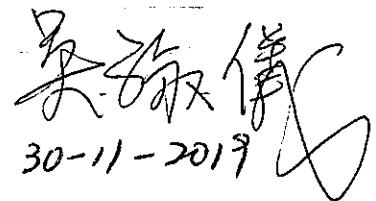 吳敏儀
30-11-2019